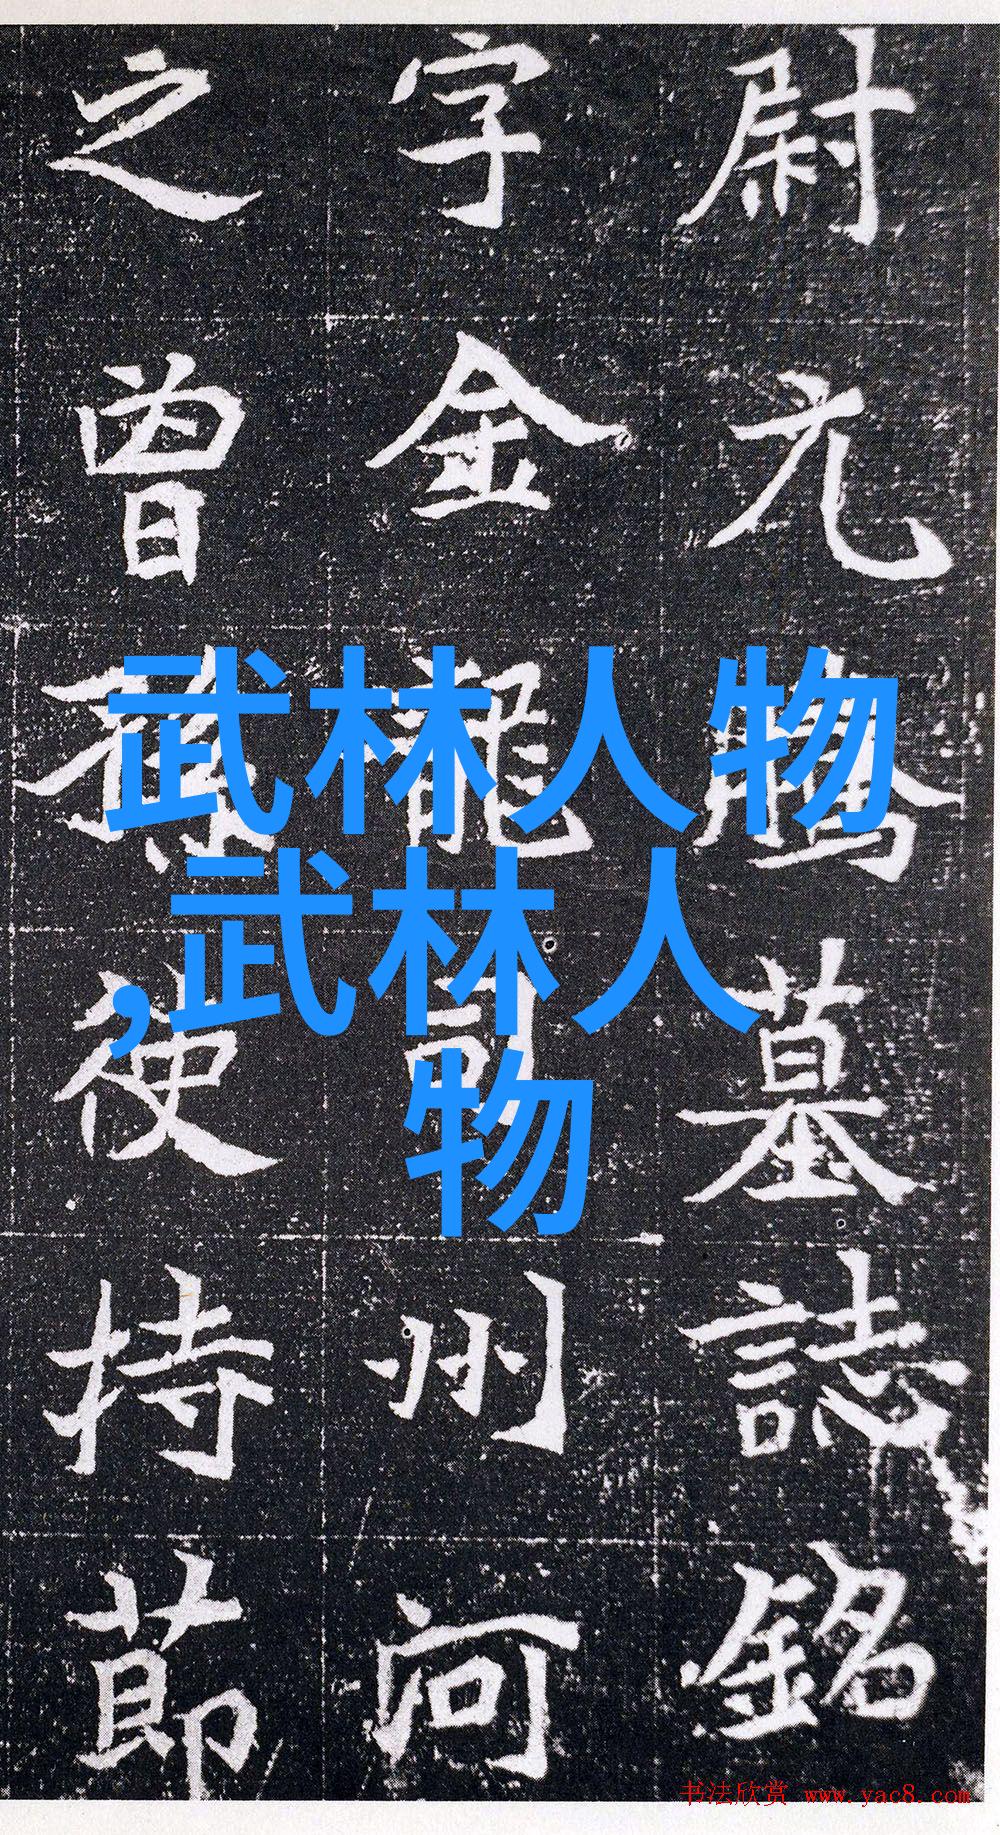 尉元騰墓誌銘
字金龍司州河
之曾孫使持節
武林人物
,武林人
物
书法欣赏 www.yac8.com